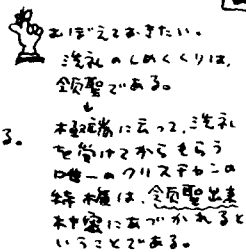 おぼえておきたい。
洗礼のしめくくりは、
領聖である。
極端に云って、洗礼
を受けてからもらう
唯一のクリスチャンの
特権は、領聖出来
る。
にあづかれると
いうことである。